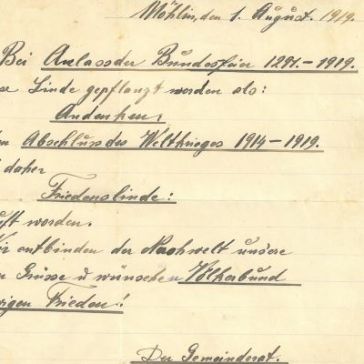 Möhlin, den 1. August. 1919.
Bei Anlass der Bundesfeier 1291.–1919.
se Linde gepflanzt werden als:
Andenken,
Abschluss des Weltkrieges 1914–1919.
daher
Friedenslinde:
uft werden.
ir entbinden der Nachwelt unsere
Grüsse u wünschen Völkerbund
igen Frieden!
Der Gemeinderat.